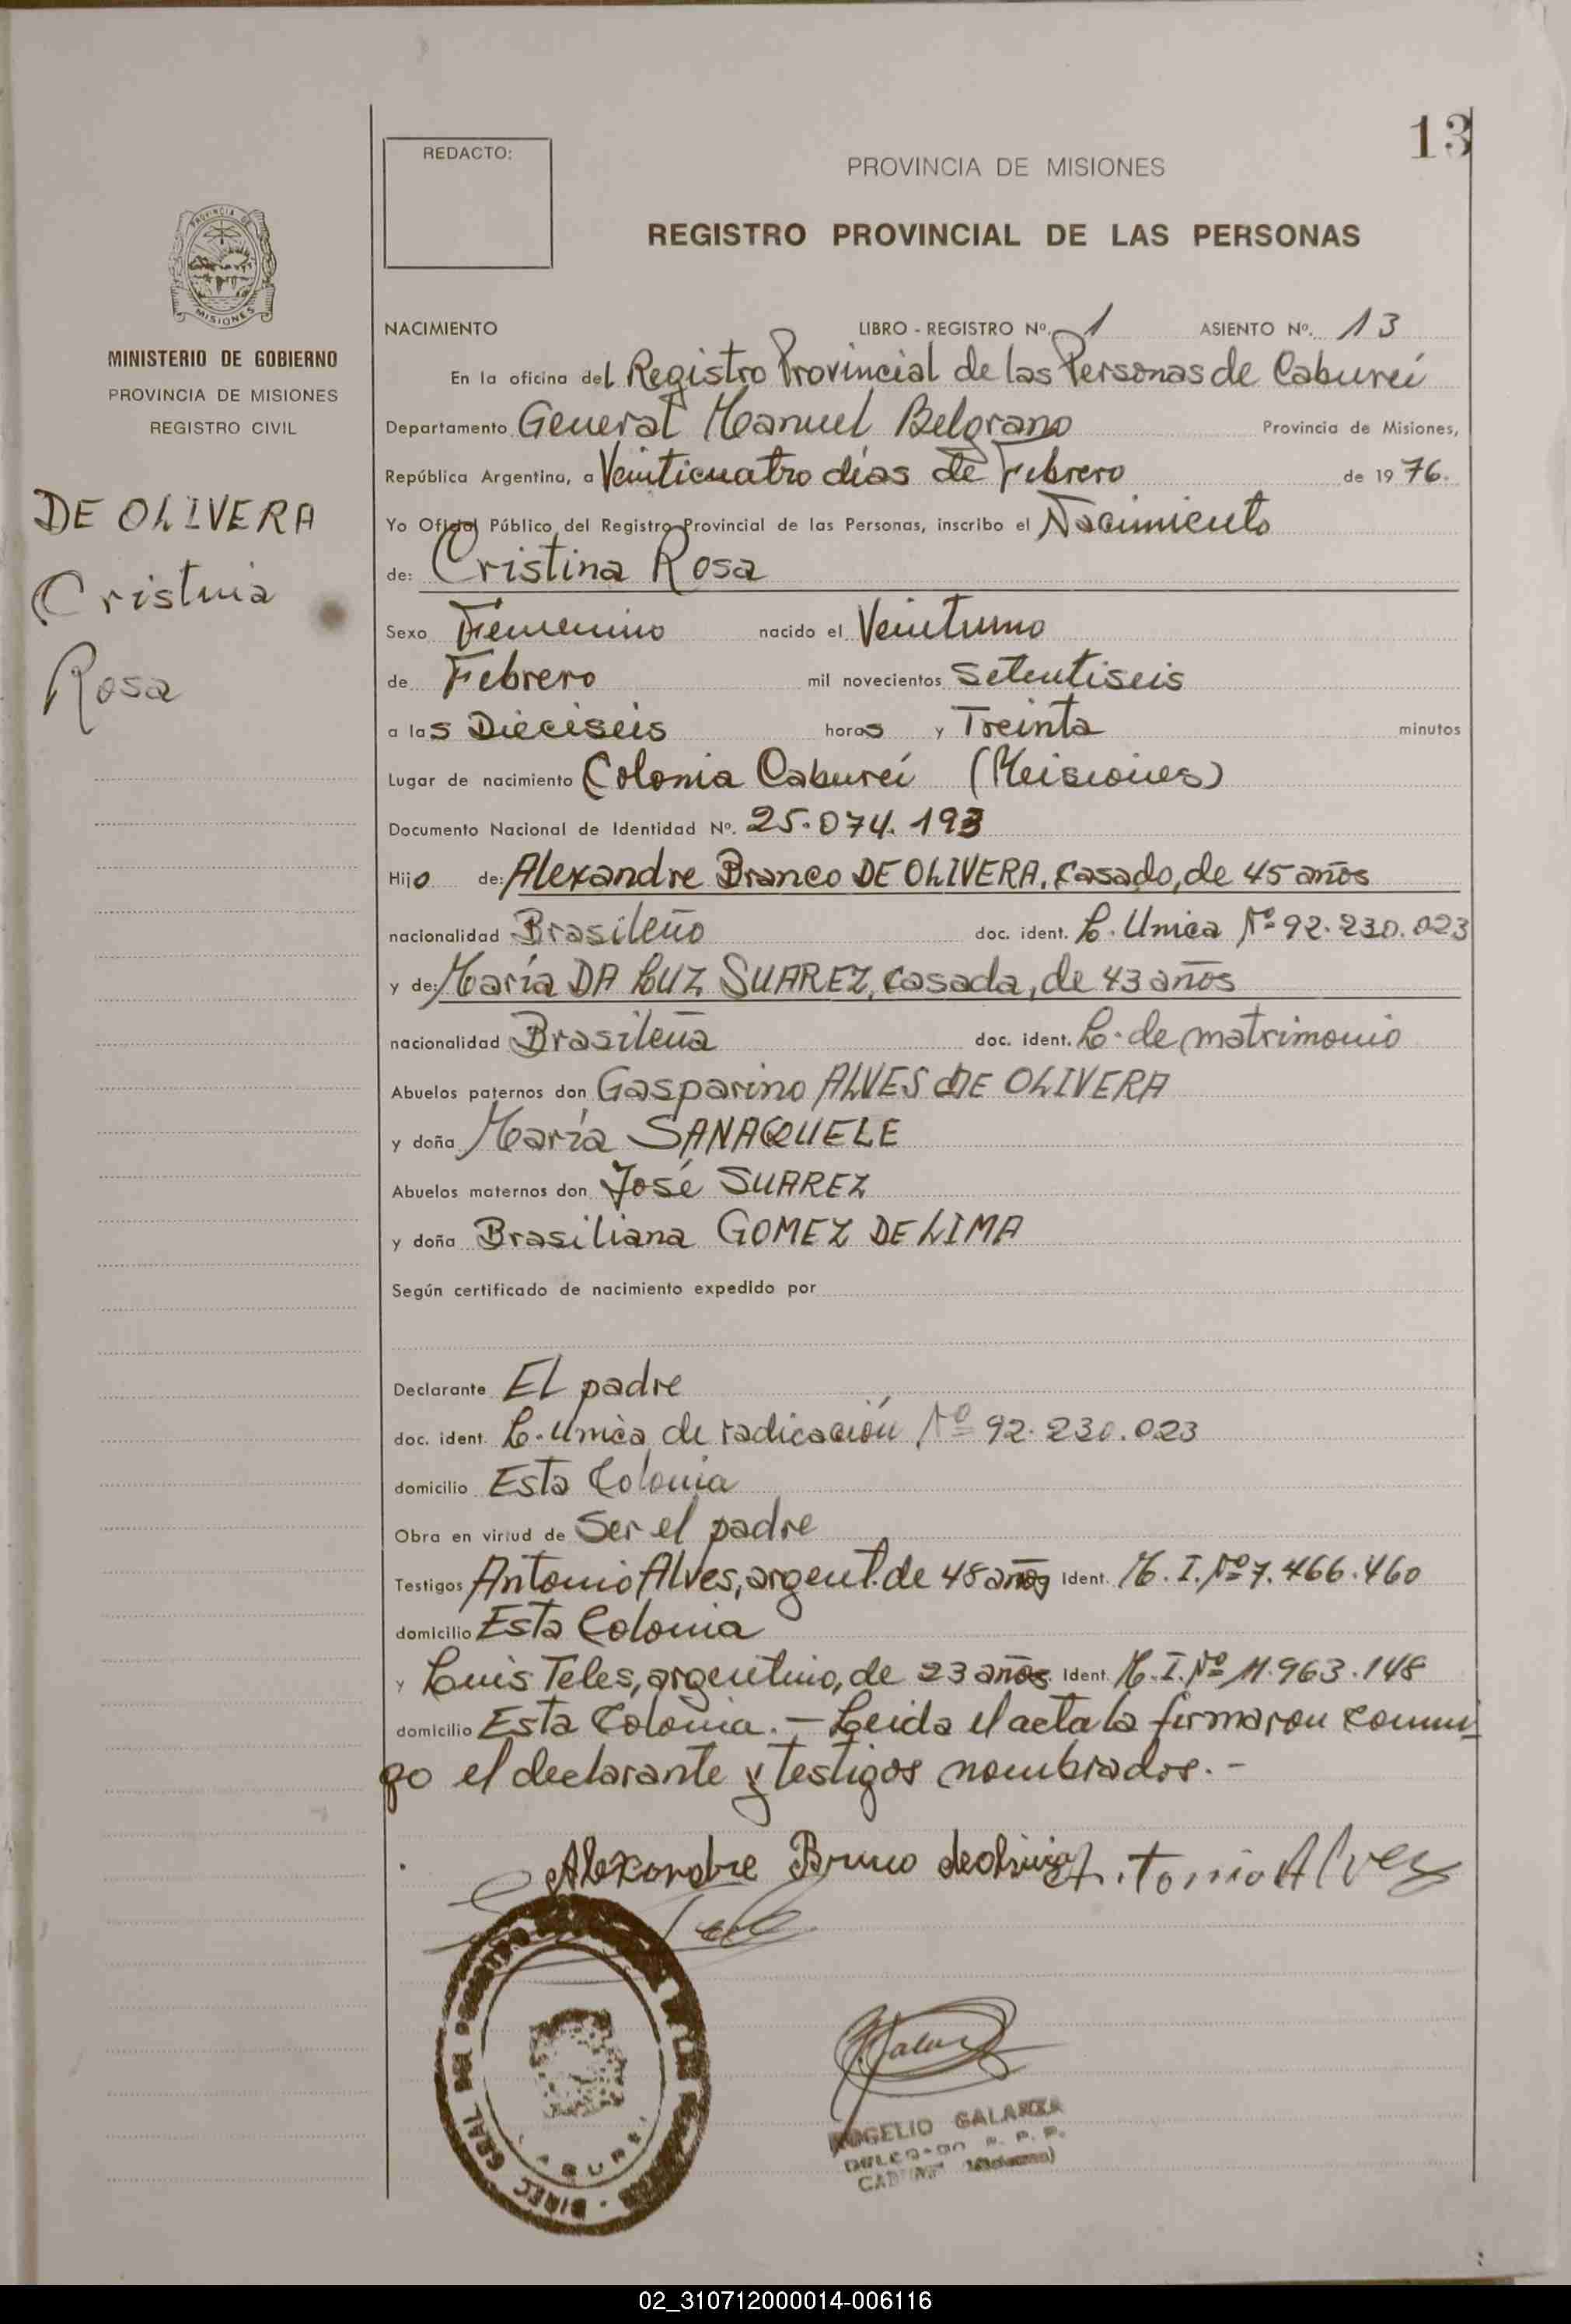 13
REDACTO:
PROVINCIA DE MISIONES
REGISTRO PROVINCIAL DE LAS PERSONAS
PROVINCIA DE
MISIONES
MINISTERIO DE GOBIERNO
PROVINCIA DE MISIONES
REGISTRO CIVIL
DE OLIVERA
Cristina
Rosa
NACIMIENTO LIBRO - REGISTRO Nº. 1 ASIENTO Nº. 13
En la oficina del Registro Provincial de las Personas de Cabureí
Departamento General Manuel Belgrano Provincia de Misiones,
República Argentina, a Veinticuatro días de Febrero de 1976.
Yo Oficial Público del Registro Provincial de las Personas, inscribo el Nacimiento
de: Cristina Rosa
Sexo Femenino nacido el Veintiuno
de Febrero mil novecientos setentiseis
a las Dieciseis horas y Treinta minutos
Lugar de nacimiento Colonia Cabureí (Misiones)
Documento Nacional de Identidad Nº. 25.074.193
Hijo de: Alexandre Branco DE OLIVERA, casado, de 45 años
nacionalidad Brasileño doc. ident. C. Unica Nº 92.230.023
y de: María DA LUZ SUAREZ, casada, de 43 años
nacionalidad Brasileña doc. ident. L. de matrimonio
Abuelos paternos don Gasparino ALVES DE OLIVERA
y doña María SANAQUELE
Abuelos maternos don José SUAREZ
y doña Brasiliana GOMEZ DE LIMA
Según certificado de nacimiento expedido por
Declarante El padre
doc. ident. C. Unica de radicación Nº 92.230.023
domicilio Esta Colonia
Obra en virtud de Ser el padre
Testigos Antonio Alves, argent. de 48 años Ident. M. I. Nº 7.466.460
domicilio Esta Colonia
y Luis Teles, argentino, de 23 años Ident. M. I. Nº 11.963.148
domicilio Esta Colonia. - Leida el acta la firmaron conmi-
go el declarante y testigos nombrados. -
Antonio Alves
ROGELIO GALARZA
R. P. P.
02_310712000014-006116